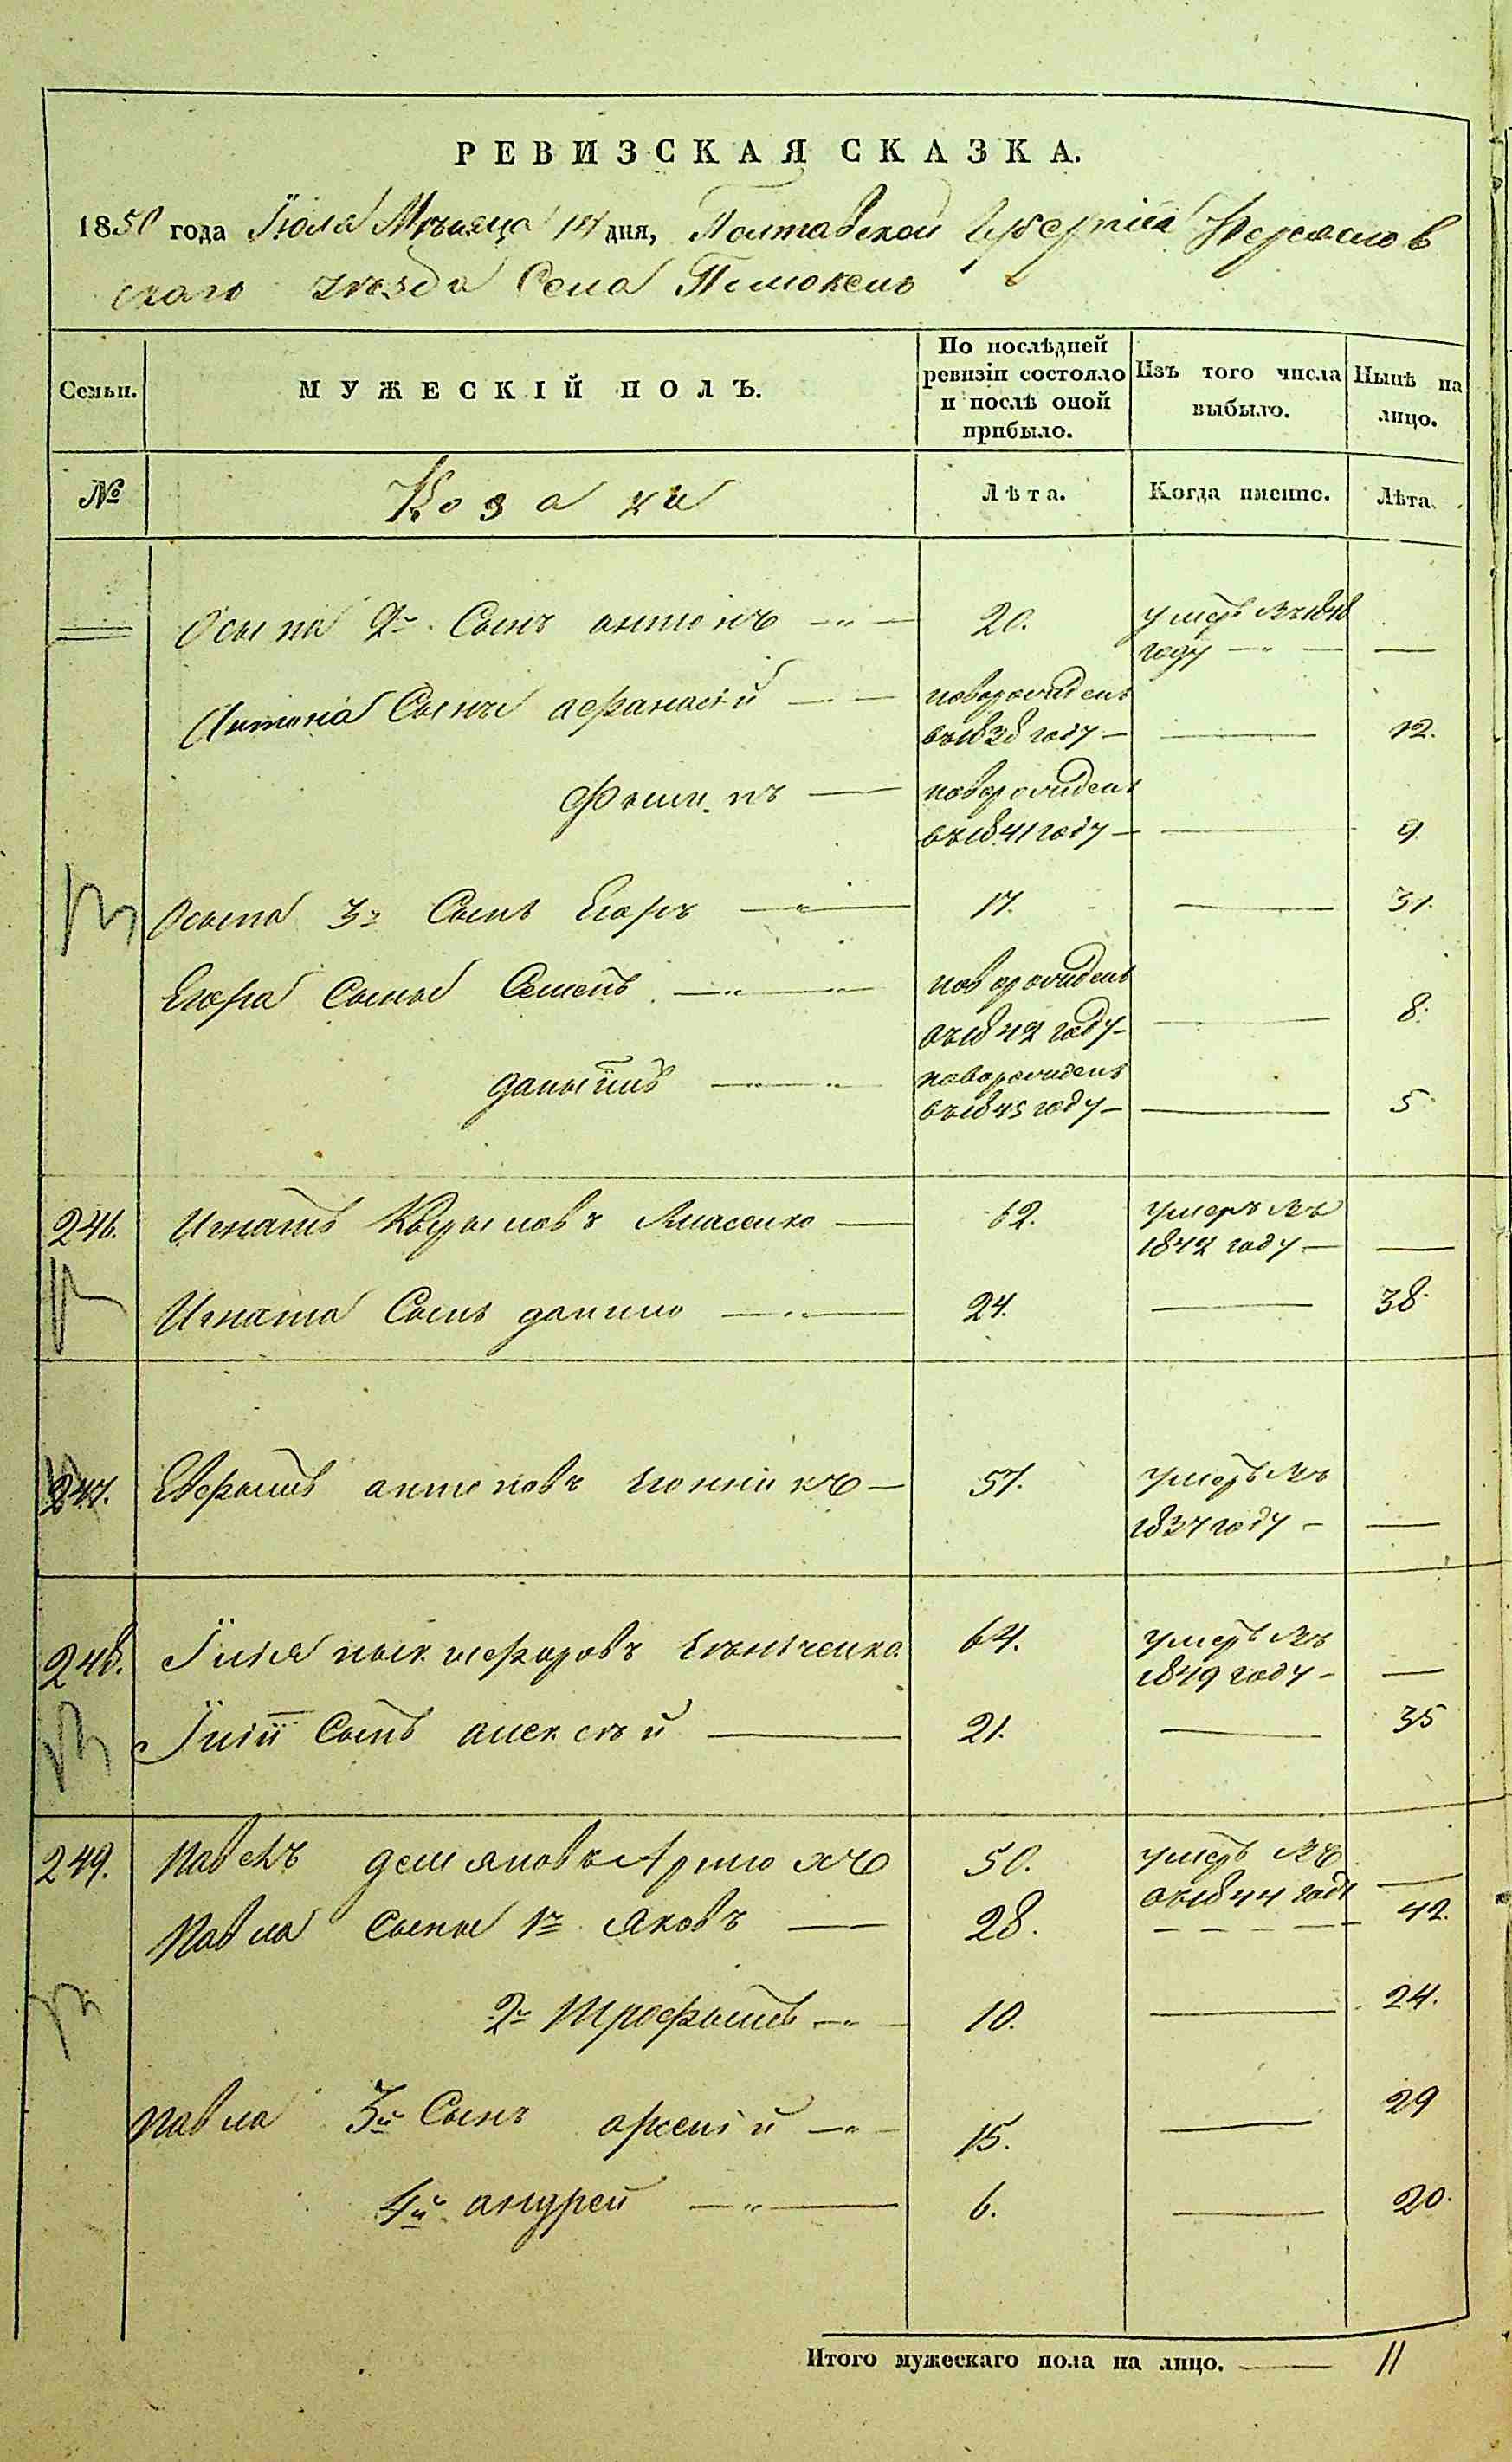 РЕВИЗСКАЯ СКАЗКА.
1850 года Іюля Мѣсяца 14 дня, Полтавской Губерніи Переяслов
скаго уѣзда Села Помоклъ
Семьи.
МУЖЕСКІЙ ПОЛЪ.
По послѣдней ревизіи состояло и послѣ оной прибыло.
Изъ того числа выбыло.
Нынѣ на лицо.
№ Козаки Лѣта. Когда именно. Лѣта.
Осыпа 2й Сынъ антонъ 20. умеръ въ 1848
году
Антона Сыны афанасій новорожденъ
въ 1838 году 12.
Филипъ новорожденъ
въ 1841 году 9.
Осыпа 3й Сынъ Егоръ 17. 31.
Егора Сыны Семенъ новорожденъ
въ 1842 году 8.
даныилъ новорожденъ
въ 1845 году 5
246. Игнатъ Власенко 62. умеръ въ
1842 году
Игната Сынъ данило 24. 38.
247. антоновъ 57. умеръ въ
1837 году
248. Їлія никифоровъ 64. умеръ въ
1849 году
Їліи Сынъ алексѣй 21. 35
249. Павелъ демяновъ 50. умеръ въ
въ 1844 году
Павла Сыны 1й яковъ 28. 42.
2й Трофымъ 10. 24.
Павла 3й Сынъ арсеній 15. 29
4й андрей 6. 20.
Итого мужескаго пола на лицо. 11